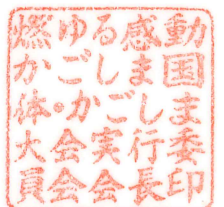 燃ゆる感動
かごしま国
体・かごしま
大会実行委
員会会長印